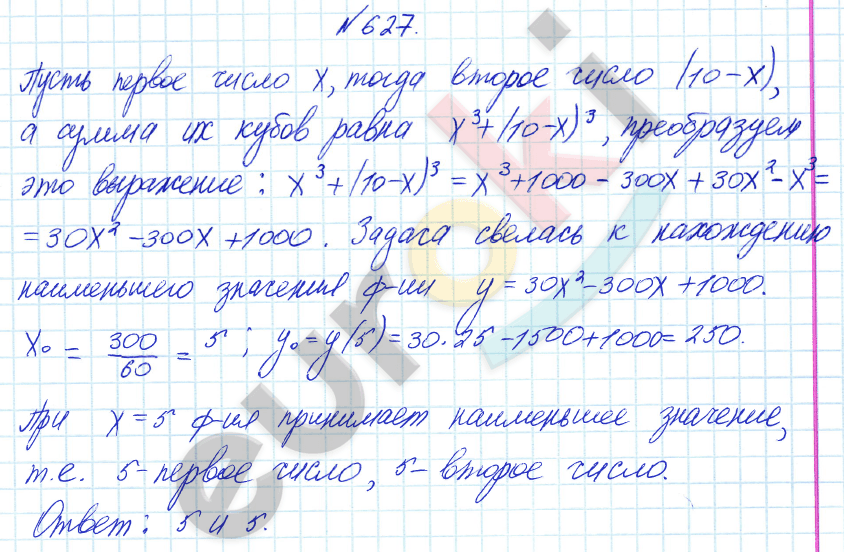 № 627.
Пусть первое число x, тогда второе число (10-x),
а сумма их кубов равна x³+(10-x)³, преобразуем
это выражение: x³+(10-x)³ = x³+1000-300x+30x²-x³=
=30x²-300x+1000. Задача свелась к нахождению
наименьшего значения ф-ии y=30x²-300x+1000.
x₀ = 300/60 = 5; y₀=y(5)=30·25-1500+1000=250.
При x=5 ф-ия принимает наименьшее значение,
т.е. 5-первое число, 5-второе число.
Ответ: 5 и 5.
euroki